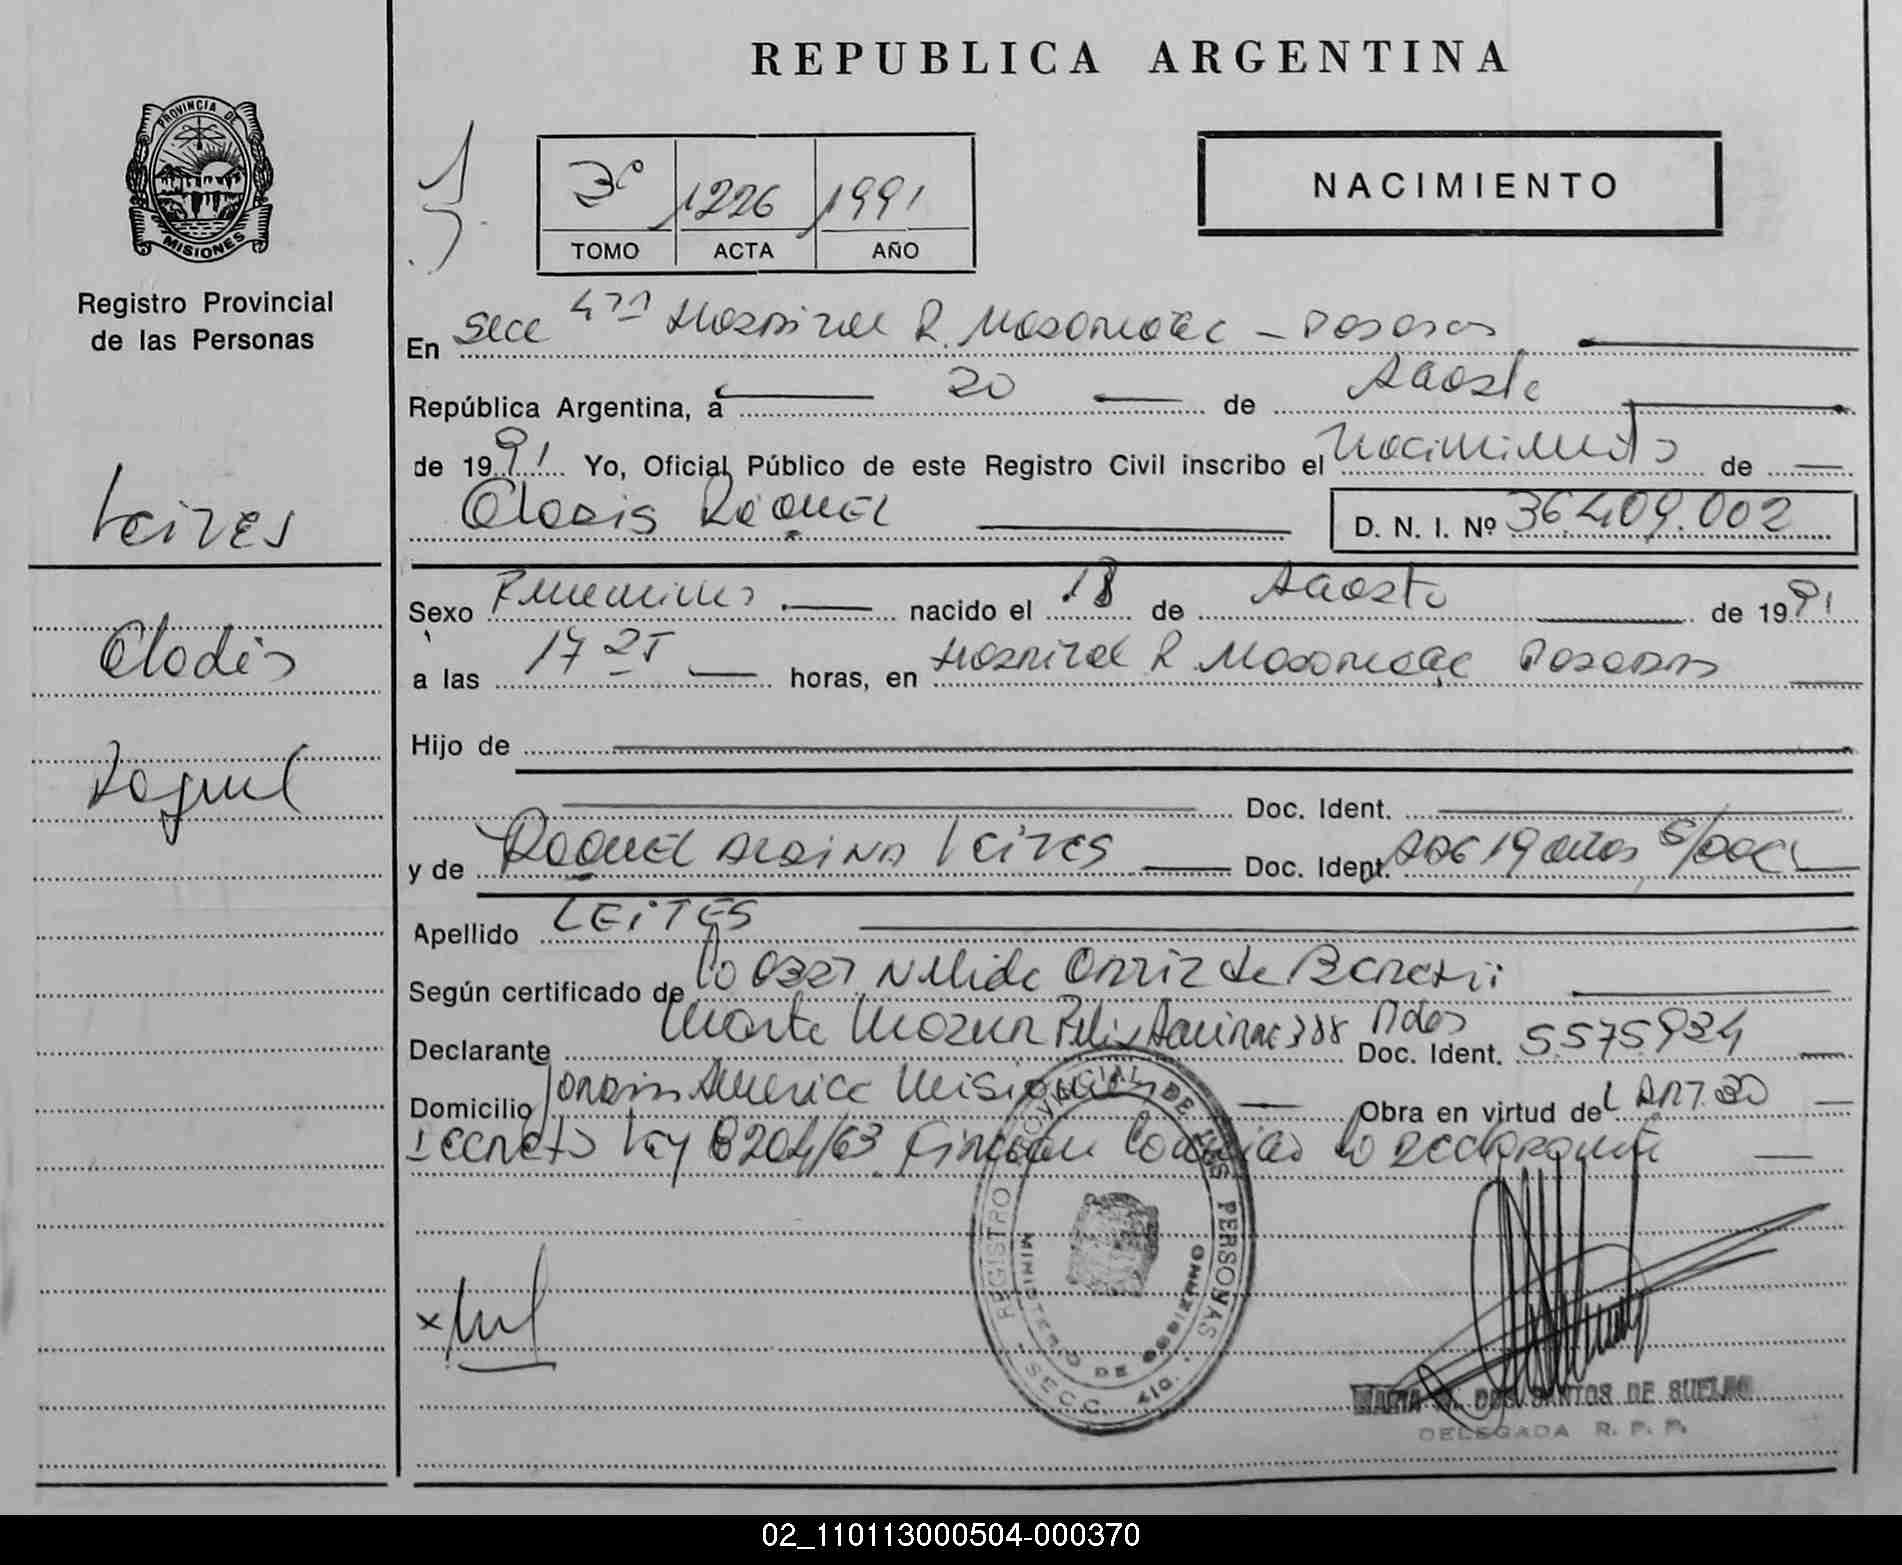 REPUBLICA ARGENTINA
PROVINCIA DE
MISIONES
Registro Provincial
de las Personas
3º 1226 1991
TOMO ACTA AÑO
NACIMIENTO
En Secc 4ta Hospital R. Madariaga - Posadas
República Argentina, a 20 de Agosto
de 1991 Yo, Oficial Público de este Registro Civil inscribo el Nacimiento de
Clodis Raquel D. N. I. Nº 36.409.002
Leites
Clodis
Raquel
Sexo Femenino nacido el 18 de Agosto de 1991
a las 17 25 horas, en Hospital R Madariaga Posadas
Hijo de
Doc. Ident.
y de Raquel Leites Doc. Ident. 19 años
Apellido LEITES
Según certificado de Nelida Ortiz de
Declarante Doc. Ident. 5575934
Domicilio America Misiones Obra en virtud del Art 30
Decreto Ley 8204/63 la declarante
REGISTRO PROVINCIAL DE LAS PERSONAS
MINISTERIO DE GOBIERNO
SECC. 4ta.
MARIA DOS SANTOS DE
DELEGADA R. P. P.
02_110113000504-000370